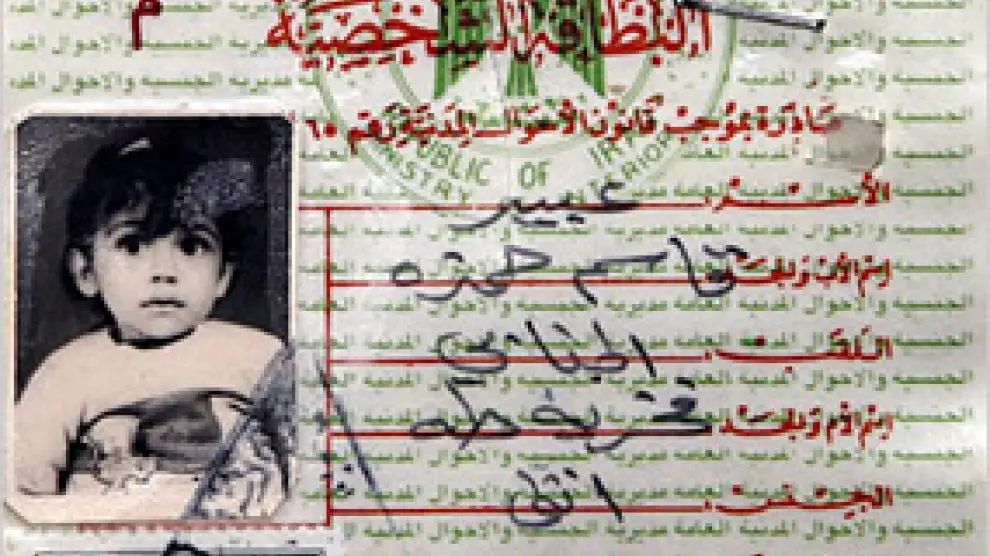 م
البطاقة الشخصية
صادرة بموجب قانون الأحوال المدنية رقم ٦٥
REPUBLIC OF IRAQ
MINISTRY INTERIOR
الأسم عبير
اسم الأب والجد قاسم حمزه
اللقب الجنابي
اسم الأم والجد فخرية طه
الجنس انثى